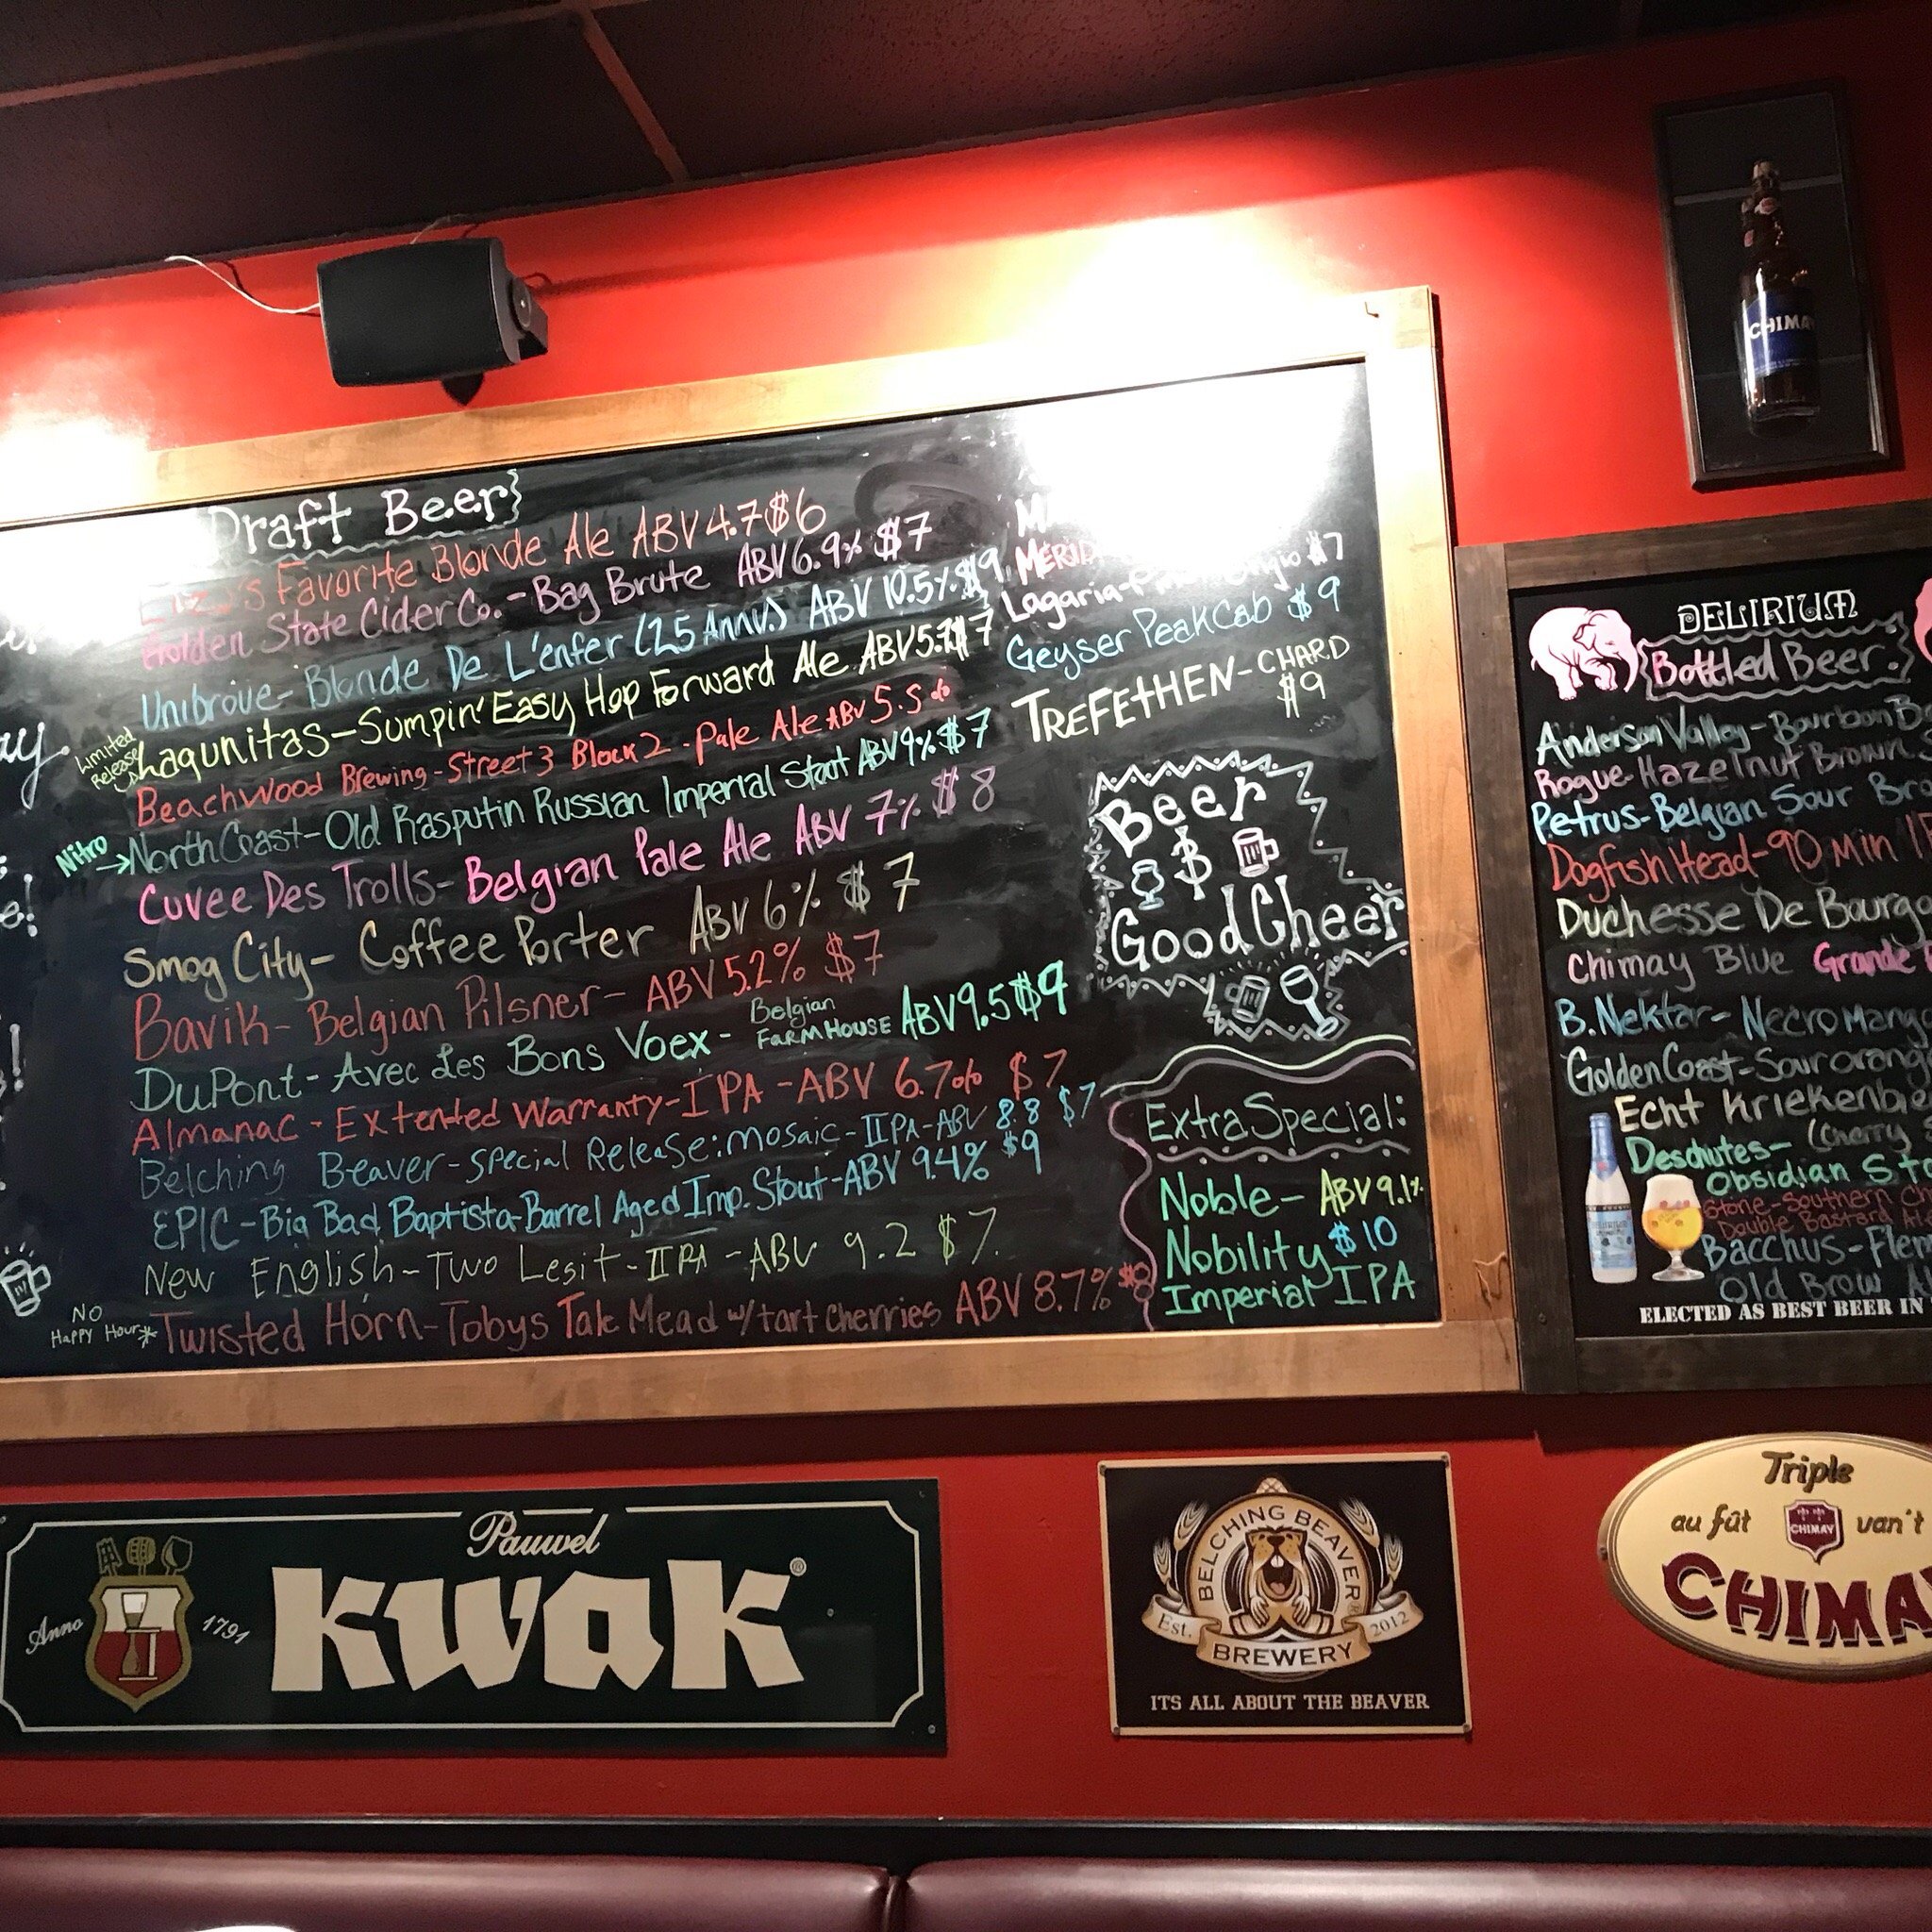 Draft Beer
Favorite Blonde Ale ABV 4.7 $6
Golden State Cider Co. - Bag Brute ABV 6.9% $7
Unibroue - Blonde De L'enfer (25 Annv.) ABV 10.5% $9
Limited Release
Lagunitas - Sumpin' Easy Hop Forward Ale ABV 5.7 $7
Beachwood Brewing - Street 3 Block 2 - Pale Ale ABV 5.5%
Nitro → North Coast - Old Rasputin Russian Imperial Stout ABV 9% $7
Cuvee Des Trolls - Belgian Pale Ale ABV 7% $8
Smog City - Coffee Porter ABV 6% $7
Bavik - Belgian Pilsner - ABV 5.2% $7
DuPont - Avec Les Bons Voex - Belgian FARMHOUSE ABV 9.5 $9
Almanac - Extented Warranty - IPA - ABV 6.7% $7
Belching Beaver - Special Release: Mosaic - IIPA - ABV 8.8 $7
EPIC - Big Bad Baptista - Barrel Aged Imp. Stout - ABV 9.4% $9
New English - Two Lesit - IIPA - ABV 9.2 $7.
NO Happy Hour * Twisted Horn - Tobys Tale Mead w/ tart cherries ABV 8.7% $8
Lagaria $7
Geyser Peak Cab $9
TREFETHEN - CHARD
$9
Beer
$
Good Cheer
Extra Special:
Noble - ABV 9.1%
Nobility $10
Imperial IPA
DELIRIUM
Bottled Beer.
Anderson Valley - Bourbon
Rogue Hazelnut Brown
Petrus - Belgian Sour
Dogfish Head - 90 Min
Duchesse De
Chimay Blue Grande
B. Nektar - Necro
Golden Coast - Sour
Echt
(Cherry
Deschutes -
Obsidian
Stone - Southern
Double Bastard
Bacchus -
Old Brow
ELECTED AS BEST BEER IN
CHIMAY
Pauwel
KWAK®
Anno 1791
BELCHING BEAVER®
Est. 2012
BREWERY
ITS ALL ABOUT THE BEAVER
Triple
au fût CHIMAY van't
CHIMAY